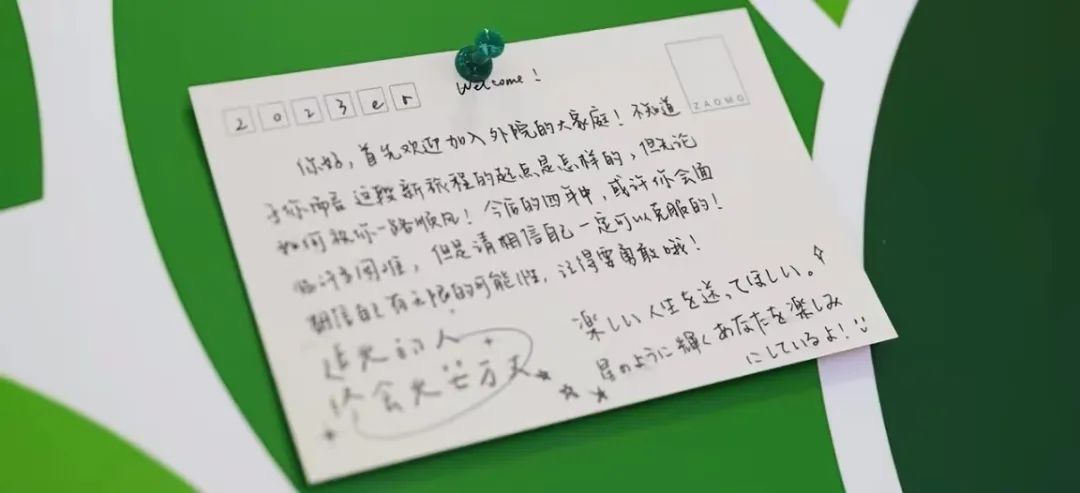 Welcome!
2023er
ZAOMO
你好，首先欢迎加入外院的大家庭！不知道
于你而言这段新旅程的起点是怎样的，但无论
如何祝你一路顺风！今后的四年中，或许你会面
临许多困难，但是请相信自己一定可以克服的！
相信自己有无限的可能性，记得要勇敢哦！
追光的人
终会光芒万丈
楽しい人生を送ってほしい。
星のように輝くあなたを楽しみ
にしているよ！